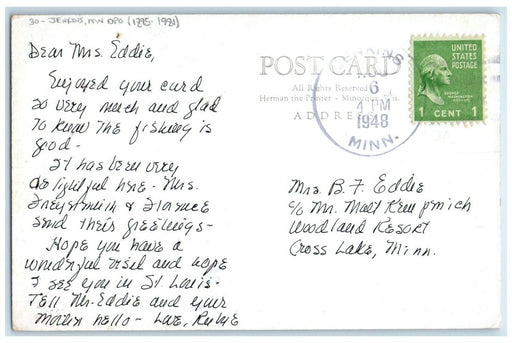 30 - JENKINS, MN DPO (1895-1981)
Dear Mrs. Eddie,
Enjoyed your card
so very much and glad
to know the fishing is
good -
It has been very
delightful here - Mrs.
& Florence
send their greetings -
Hope you have a
wonderful visit and hope
I see you in St. Louis -
Tell Mr. Eddie and your
Mother hello - Love, Rubye
POST CARD
All Rights Reserved
Herman the Printer - Minn.
ADDRESS
6
4 PM
1948
MINN.
UNITED
STATES
POSTAGE
1 CENT 1
Mrs. B. F. Eddie
c/o Mr. Matt Krumpmich
Woodland Resort
Cross Lake, Minn.